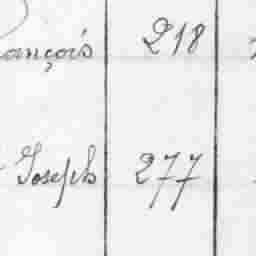 ançois 218
Joseph 277